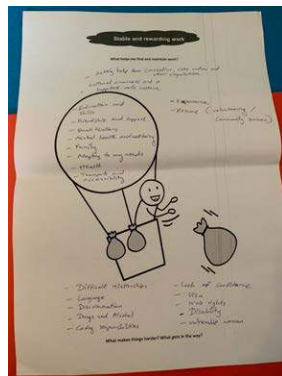 Stable and rewarding work
What helps me find and maintain work?
- Getting help from
and
other organisations
cultural awareness and a
supportive work culture
- Education and
skills
- and support
- Mental health and wellbeing
- Family
- Adapting to my needs
- Health
- Transport and
accessibility
- Experience
- (volunteering /
community service)
- Difficult relationships
- Language
- Discrimination
- Drugs and Alcohol
- Caring responsibilities
- Lack of confidence
- Visa
- Work rights
- Disability
- Vulnerable women
What makes things harder? What gets in the way?